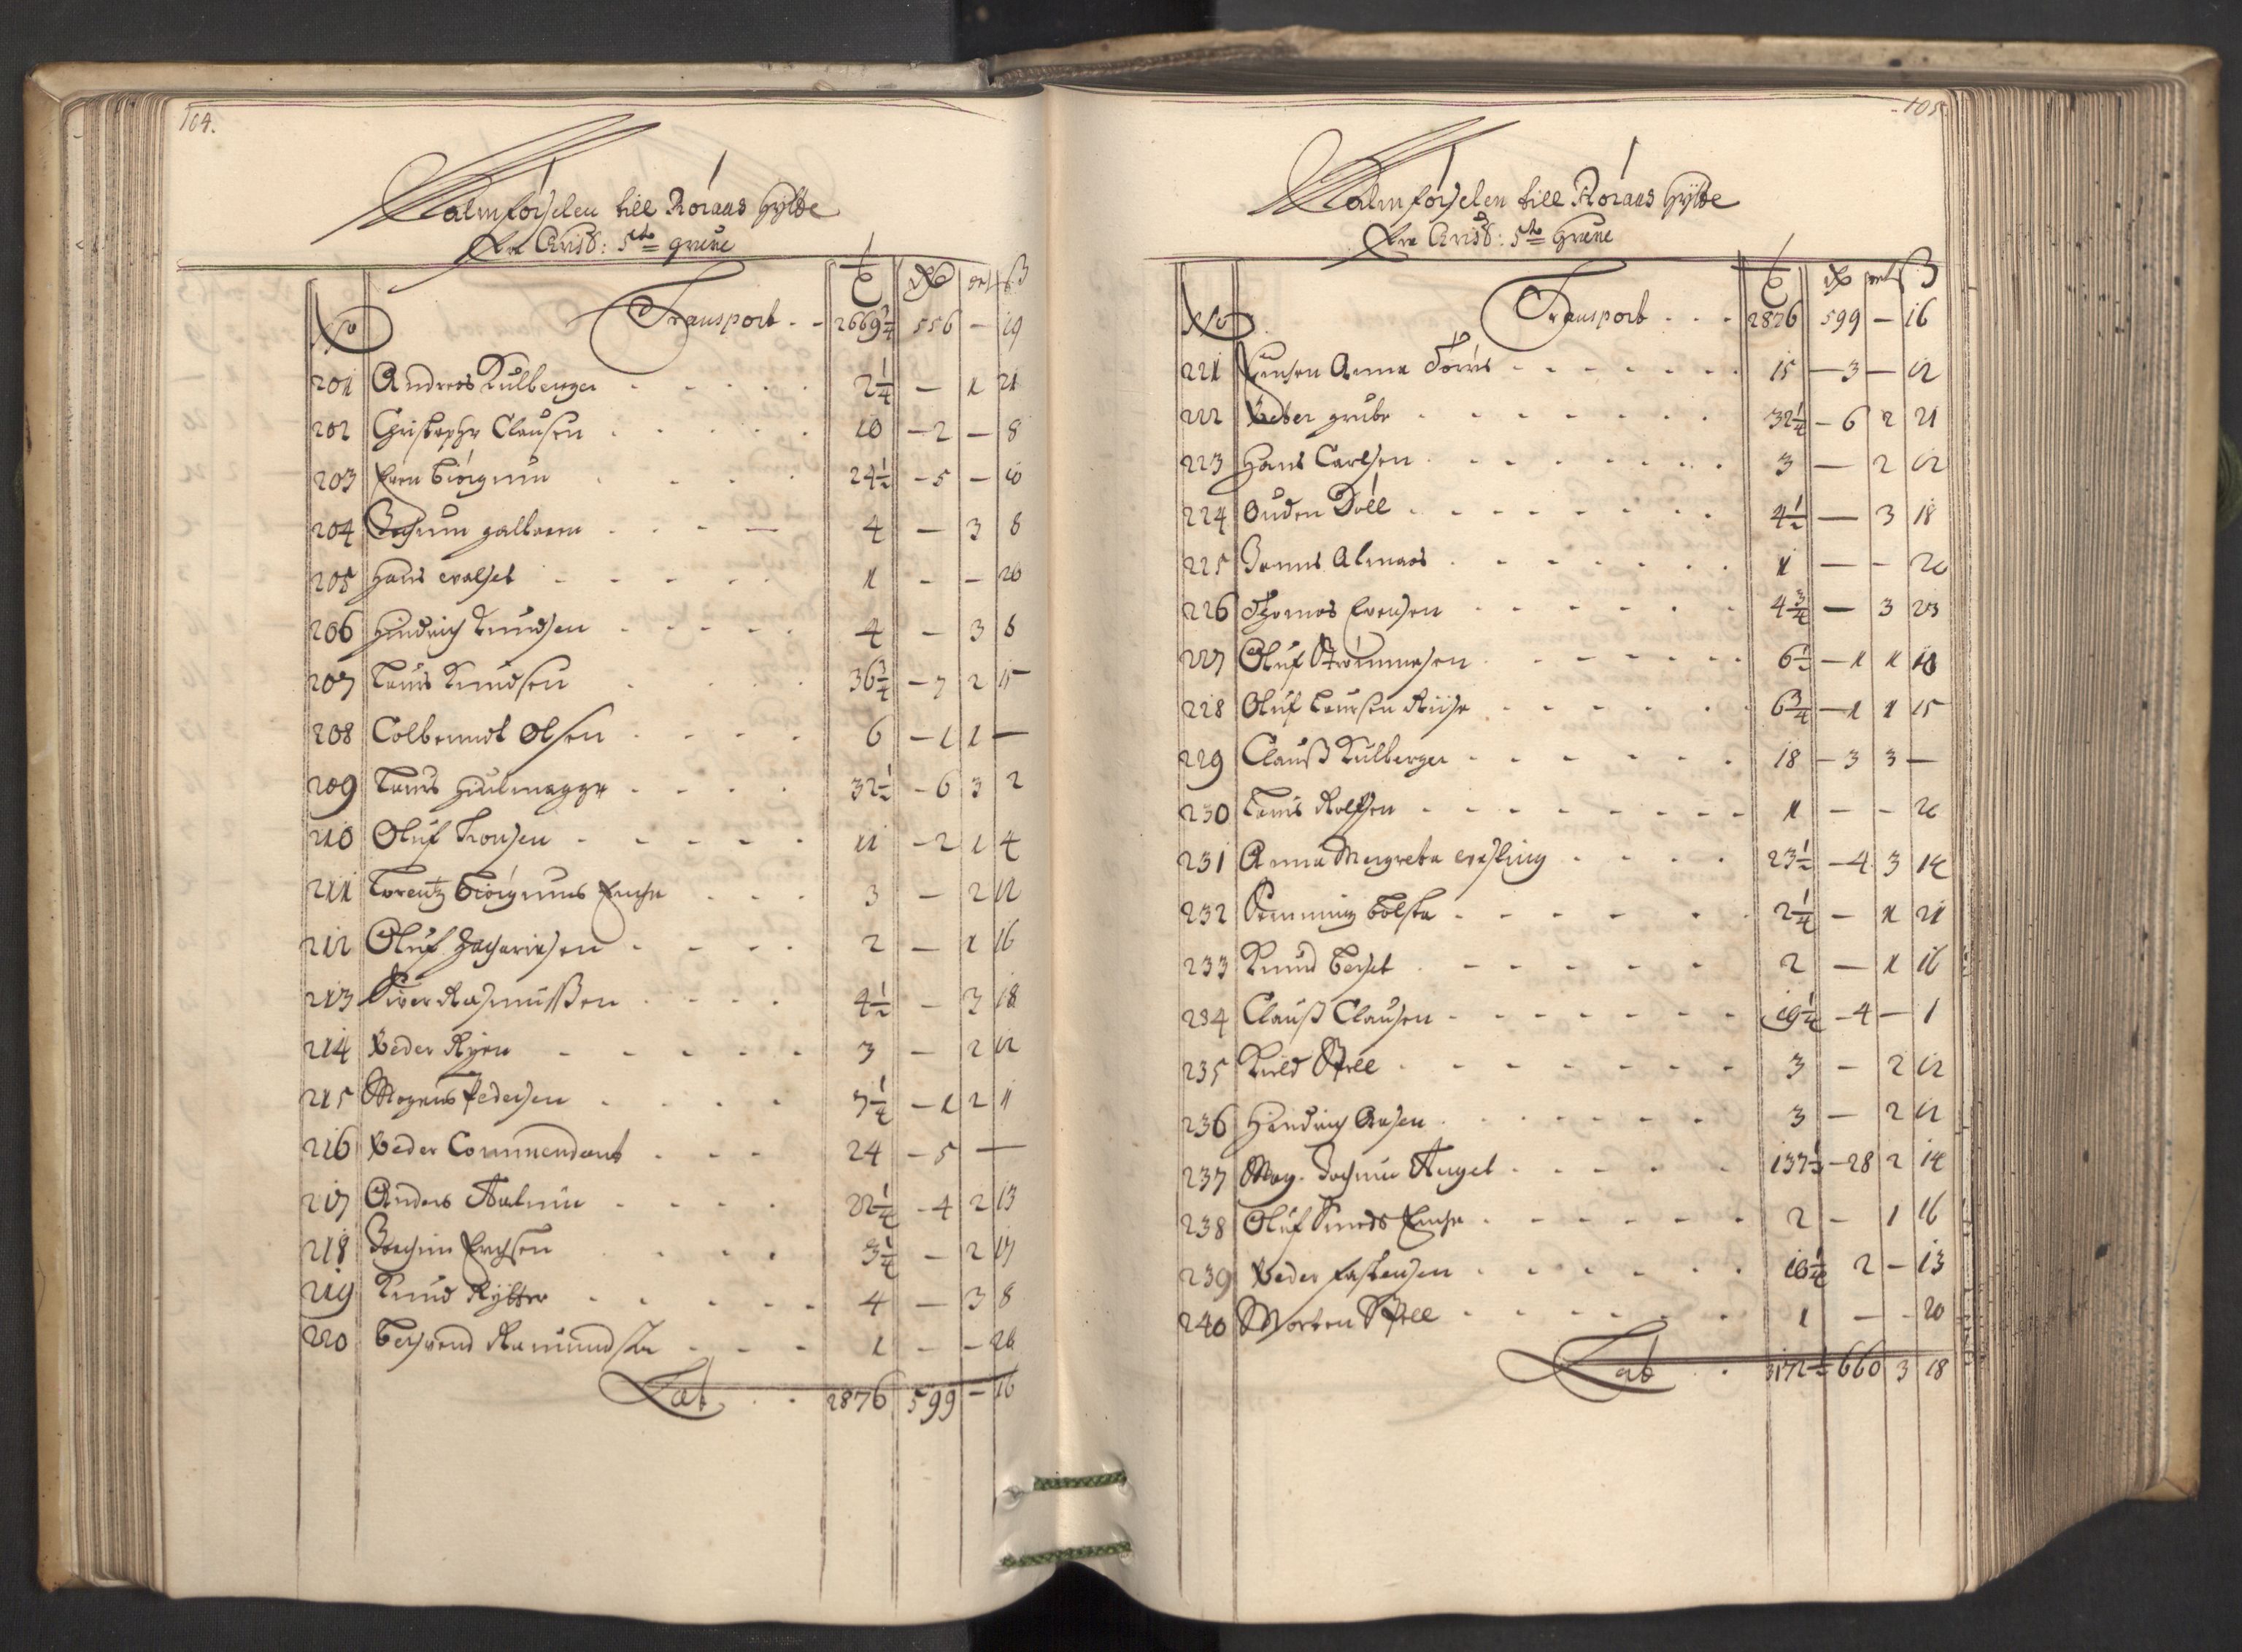 104.
Malmförselen till Röraas Hÿtte
fra Chris: 5te grüve
No Transport - - 2669 3/4 556 - 19
201 Andreas Kulberger - - - - 2 1/4 - 1 21
202 Christopher Clausen - - - - 10 - 2 - 8
203 Even Biörgmin - - - - 24 1/2 - 5 - 10
204 Jochum galbaeen - - - - 4 - 3 8
205 Hans evalset - - - - 1 - - 20
206 Hindrich Knudsen - - - - 4 - 3 8
207 Lauris Knudsen - - - - 36 3/4 - 7 2 15
208 Colbenndt Olsen - - - - 6 - 1 1 -
209 Lauris Huilmagger - - - - 32 1/2 - 6 3 2
210 Oluf Tronsen - - - - 11 - 2 1 4
211 Lorentz Biörgmins Enche - - - 3 - 2 12
212 Oluf Zachariesen - - - - 2 - 1 16
213 Siver Rasmussen - - - - 4 1/2 - 3 18
214 Peder Ryen - - - - - 3 - 2 12
215 Mogens Pedersen - - - - 7 1/4 - 1 2 1
216 Peder Commendant - - - 24 - 5 -
217 Anders Aalmin - - - - 22 1/4 - 4 2 13
218 Jochim Erichsen - - - - 3 1/4 - 2 17
219 Knud Rÿtter - - - - - 4 - 3 8
220 Berhrend Ramundsen - - - 1 - - 20
Lat. . . 2876 599 - 16
105
Malmförselen till Röraas Hÿtte
fra Chris: 5te Grüve
No Transport - - - 2876 599 - 16
221 Enchen Anna Törris - - - - - - 15 - 3 - 12
222 Peter grube - - - - - - 32 1/4 - 6 2 21
223 Hans Carlsen - - - - - - 3 - 2 12
224 Ouden Döll - - - - - - 4 1/2 - 3 18
225 Jonnes Almaas - - - - - - 1 - - 20
226 Thomas Evensen - - - - - - 4 3/4 - 3 23
227 Oluf Strömmesen - - - - - - 6 1/2 - 1 1 10
228 Oluf Laursen Riise - - - - - - 6 3/4 - 1 1 15
229 Clauß Kulberger - - - - - - 18 - 3 3 -
230 Lauris Rolfsen - - - - - - - 1 - - 20
231 Anna Margreta evesling - - - - 23 1/2 - 4 3 14
232 Semming Tolsta - - - - - - 2 1/4 - 1 21
233 Knud Berset - - - - - - 2 - 1 16
234 Clauß Clausen - - - - - - - 19 1/4 - 4 - 1
235 Kield Stfell - - - - - - - 3 - 2 12
236 Hindrich Aasen - - - - - - 3 - 2 12
237 Mag. Jochim Angel - - - - - 137 1/2 - 28 2 14
238 Oluf Smeds Enche - - - - - - 2 - 1 16
239 Peder Eastensen - - - - - - 10 1/4 2 - 13
240 Morten Stfell - - - - - - 1 - - 20
Lat . . 3172 1/2 660 3 18